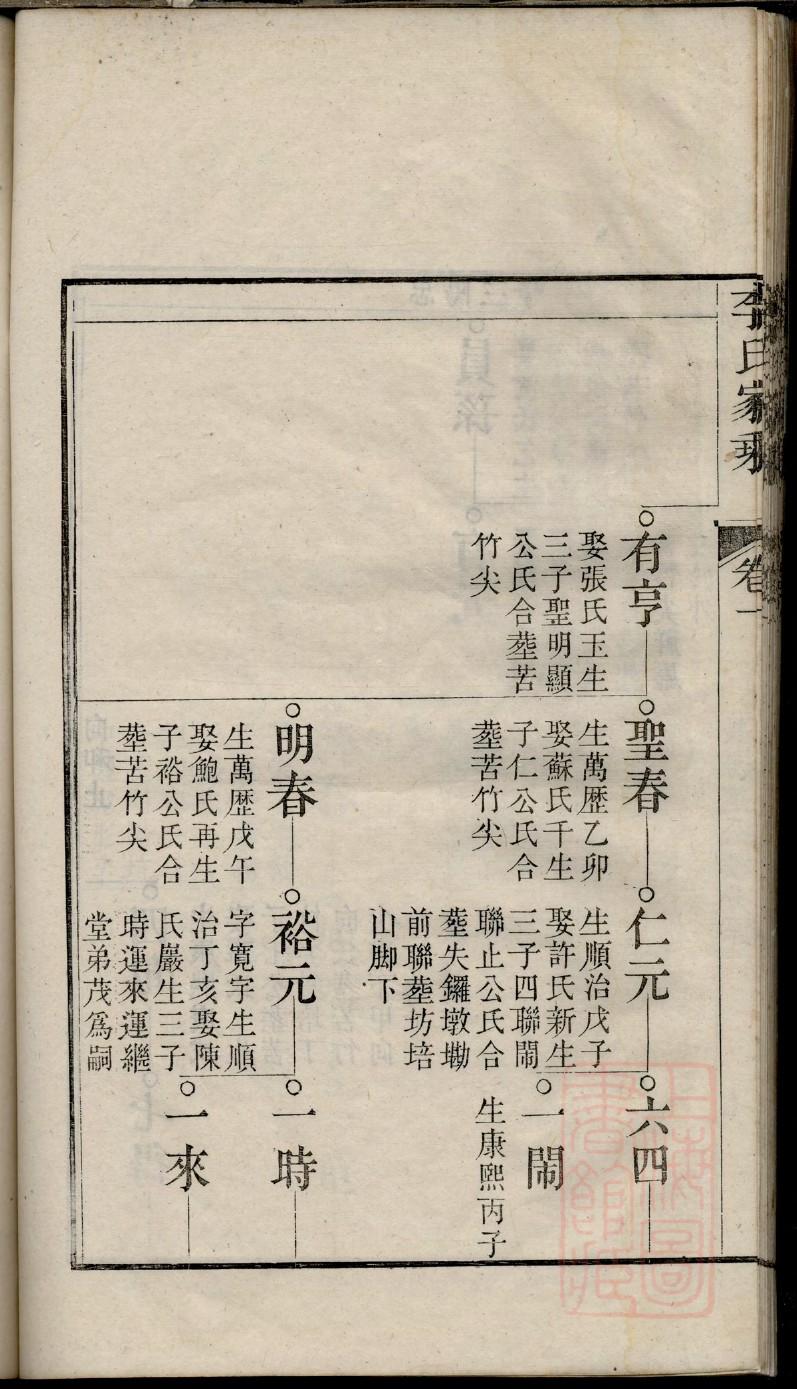 李氏家乘
卷一
有亨
娶張氏玉生
三子聖明顯
公氏合塟苦
竹尖
聖春
生萬歷乙卯
娶蘇氏千生
子仁公氏合
塟苦竹尖
仁元
生順治戊子
娶許氏新生
三子四聯鬧
聯止公氏合
塟失鑼墩勘
前聯塟坊培
山脚下
六四
一鬧
生康熙丙子
明春
生萬歷戊午
娶鮑氏再生
子裕公氏合
塟苦竹尖
裕元
字寬字生順
治丁亥娶陳
氏巖生三子
時運來運繼
堂弟茂爲嗣
一時
一來